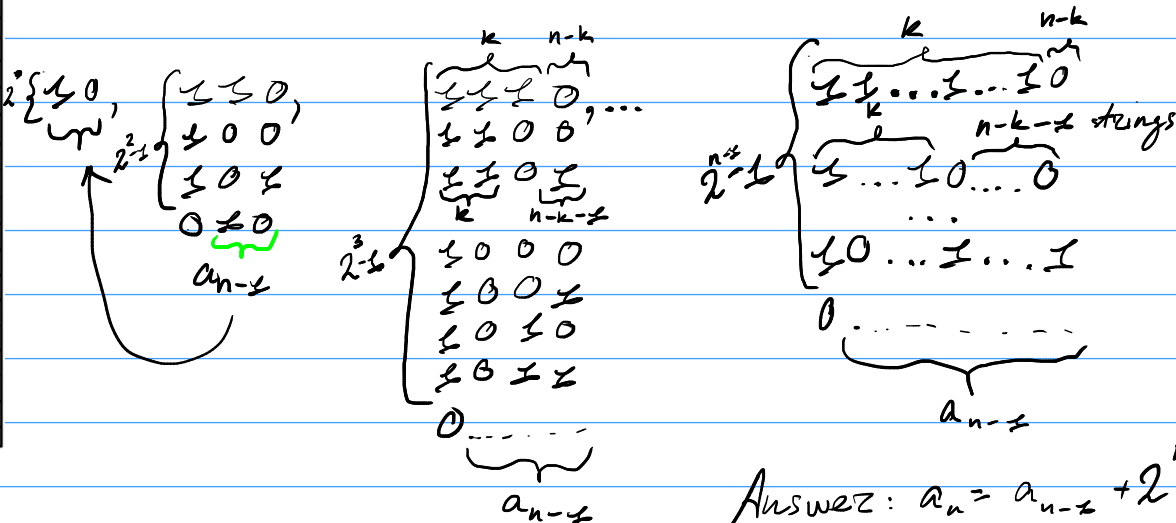 2¹ { 1 0 ,
2²-1 { 1 1 0 ,
1 0 0
1 0 1
0 1 0
aₙ₋₁
k n-k
2³-1 { 1 1 1 0 , ...
1 1 0 0
1 1 0 1
k n-k-1
1 0 0 0
1 0 0 1
1 0 1 0
1 0 1 1
0 . . . .
aₙ₋₁
k n-k
1 1 ... 1 ... 1 0
k n-k-1 strings
2ⁿ⁻¹-1 { 1 ... 1 0 .... 0
...
1 0 ... 1 ... 1
0 . . . . .
aₙ₋₁
Answer: aₙ = aₙ₋₁ + 2